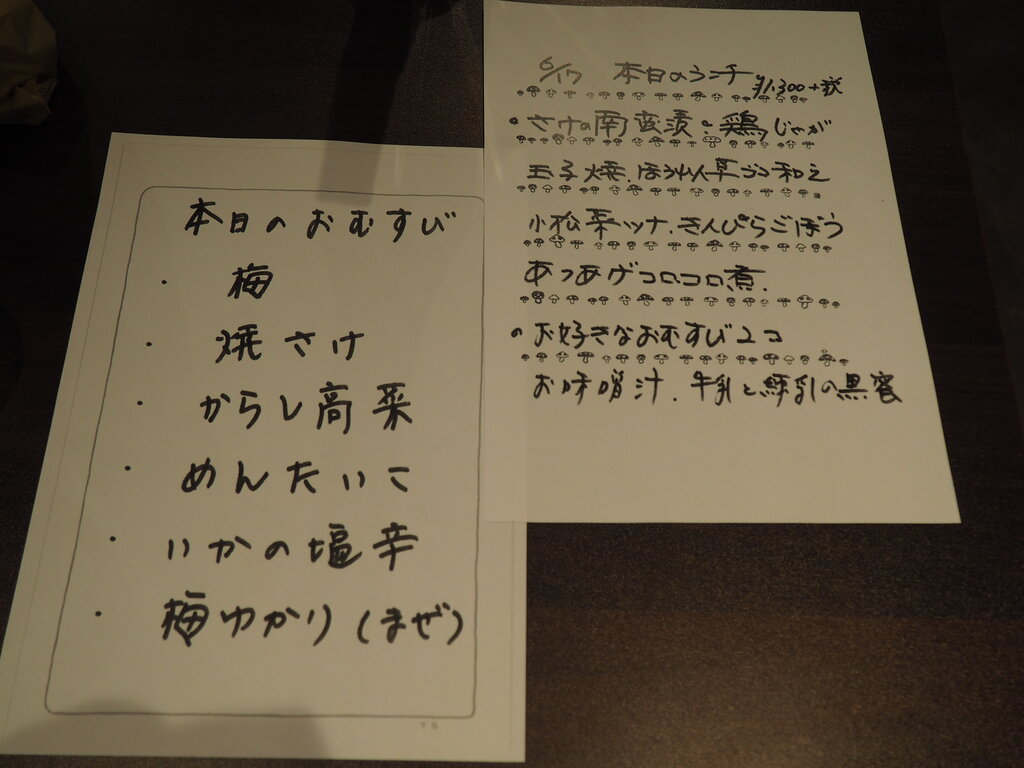 本日のおむすび
・梅
・焼さけ
・からし高菜
・めんたいこ
・いかの塩辛
・梅ゆかり(まぜ)
6/17 本日のランチ ¥1,300+税
・さけの南蛮漬・鶏じゃが
玉子焼.ほうれん草ゴマ和え
小松菜ツナ.きんぴらごぼう
あつあげコロコロ煮.
・お好きなおむすび2コ
お味噌汁.牛乳と練乳の黒蜜